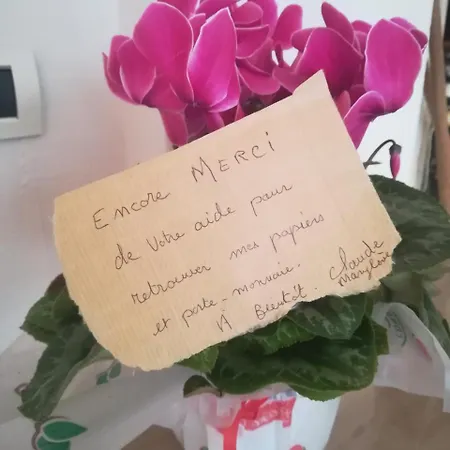 Encore MERCI
de Votre aide pour
retrouver mes papiers
et porte-monnaie.
A Bientôt. Claude